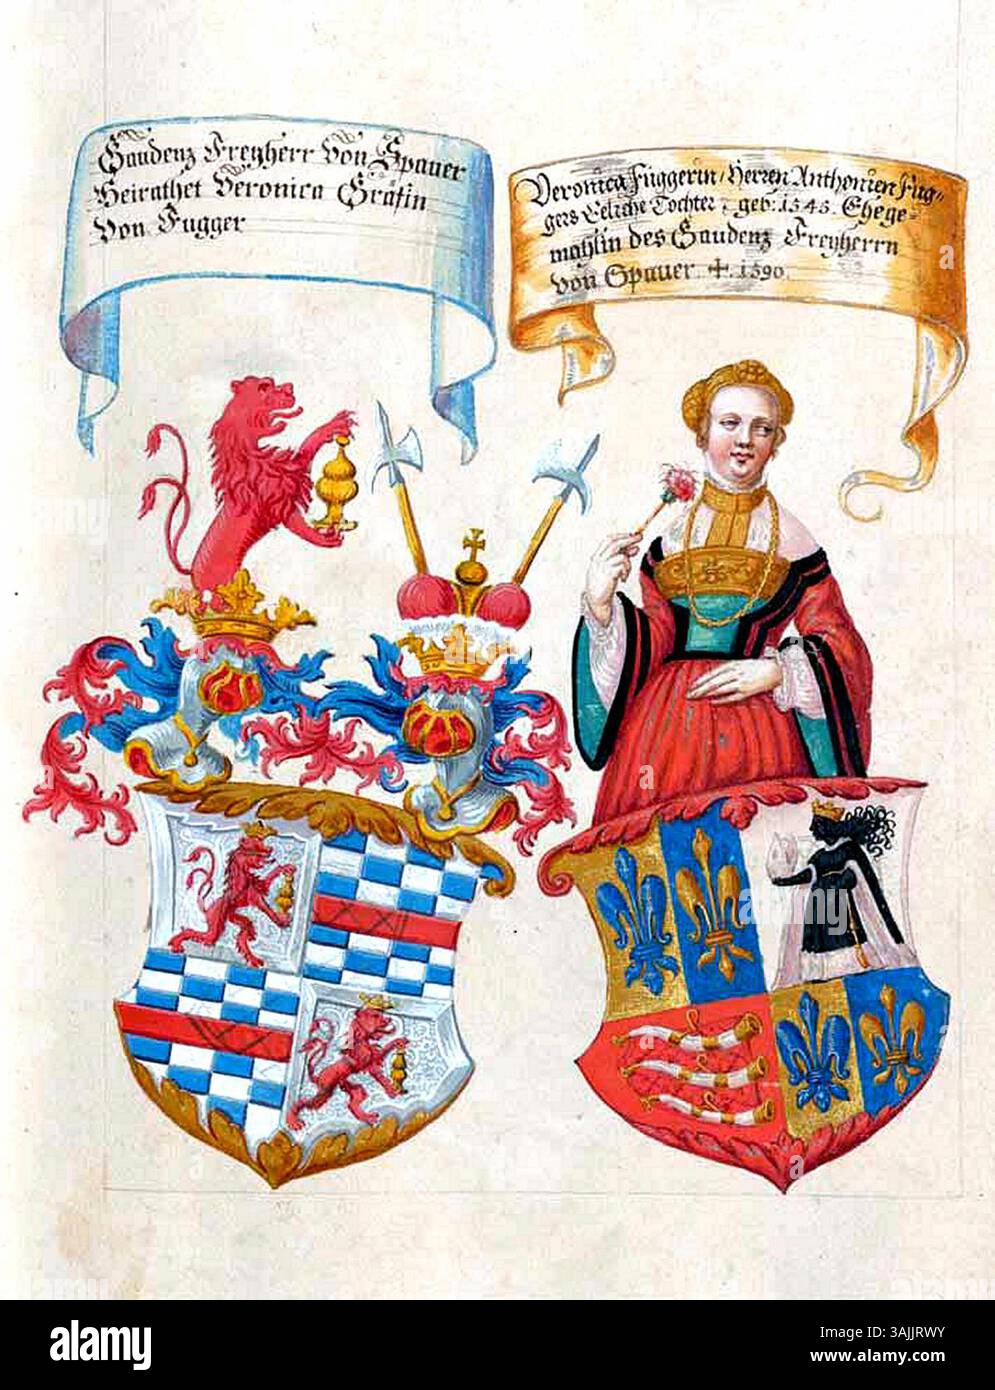 Gaudenz Freyherr Von Spauer
Heirathet Veronica Gräfin
Von Fugger
Veronica Fuggerin / Herren Anthonien Fug=
gers Eeliche Tochter, geb: 1545. Ehege=
mahlin des Gaudenz Freyherrn
von Spauer. +. 1590.
alamy
Image ID: 3AJJRWY
www.alamy.com